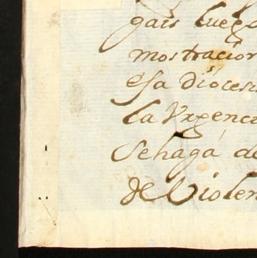 gais luego
mostracion
esa dioces
la Urgenc
Sehaga de
de Violen